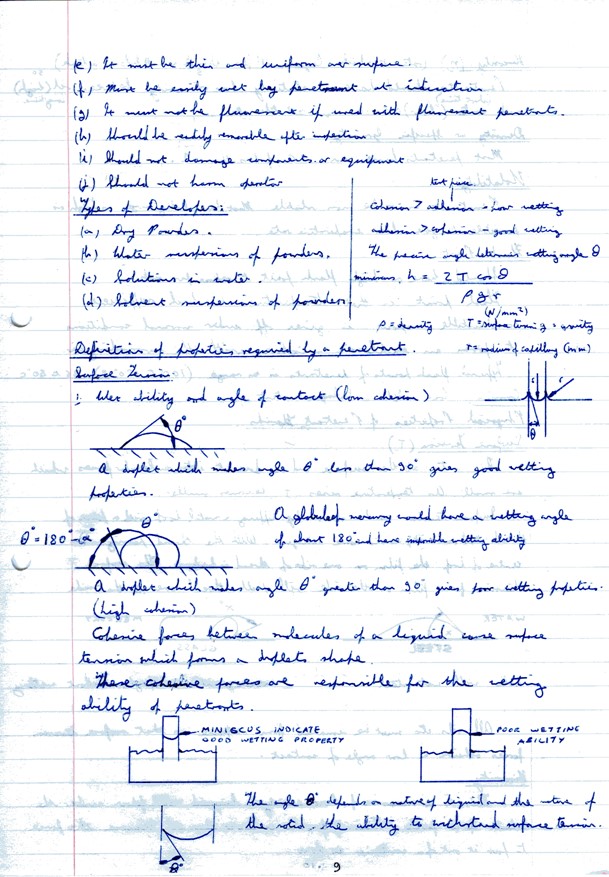 (e) It must be thin and uniform over surface.
(f) Must be easily wet by penetrant at indication
(g) It must not be fluorescent if used with fluorescent penetrants.
(h) Should be easily removable after inspection
(i) Should not damage components or equipment
(j) Should not harm operator
Types of Developers:
(a) Dry Powders.
(b) Water suspensions of powders.
(c) Solutions in water.
(d) Solvent suspension of powders.
test piece.
Cohesion > adhesion - poor wetting
adhesion > cohesion - good wetting
The precise angle determines wetting angle θ
h = 2 T cos θ
ρ g r
(N/mm²)
ρ = density T = surface tension g = gravity
r = radius of capillary (mm)
Definition of properties required by a penetrant.
Surface Tension
1. Wet ability and angle of contact (low cohesion)
θ°
r
θ
A droplet which makes angle θ° less than 90° gives good wetting
properties.
θ° = 180° - α°
θ°
A globule of mercury would have a wetting angle
of about 180° and have impossible wetting ability
A droplet which makes angle θ° greater than 90° gives poor wetting properties.
(high cohesion)
Cohesive forces between molecules of a liquid cause surface
tension which forms a droplets shape.
These cohesive forces are responsible for the wetting
ability of penetrants.
MINISCUS INDICATE
GOOD WETTING PROPERTY
POOR WETTING
ABILITY
The angle θ° depends on nature of liquid and the nature of
the solid, the ability to withstand surface tension.
θ°
9